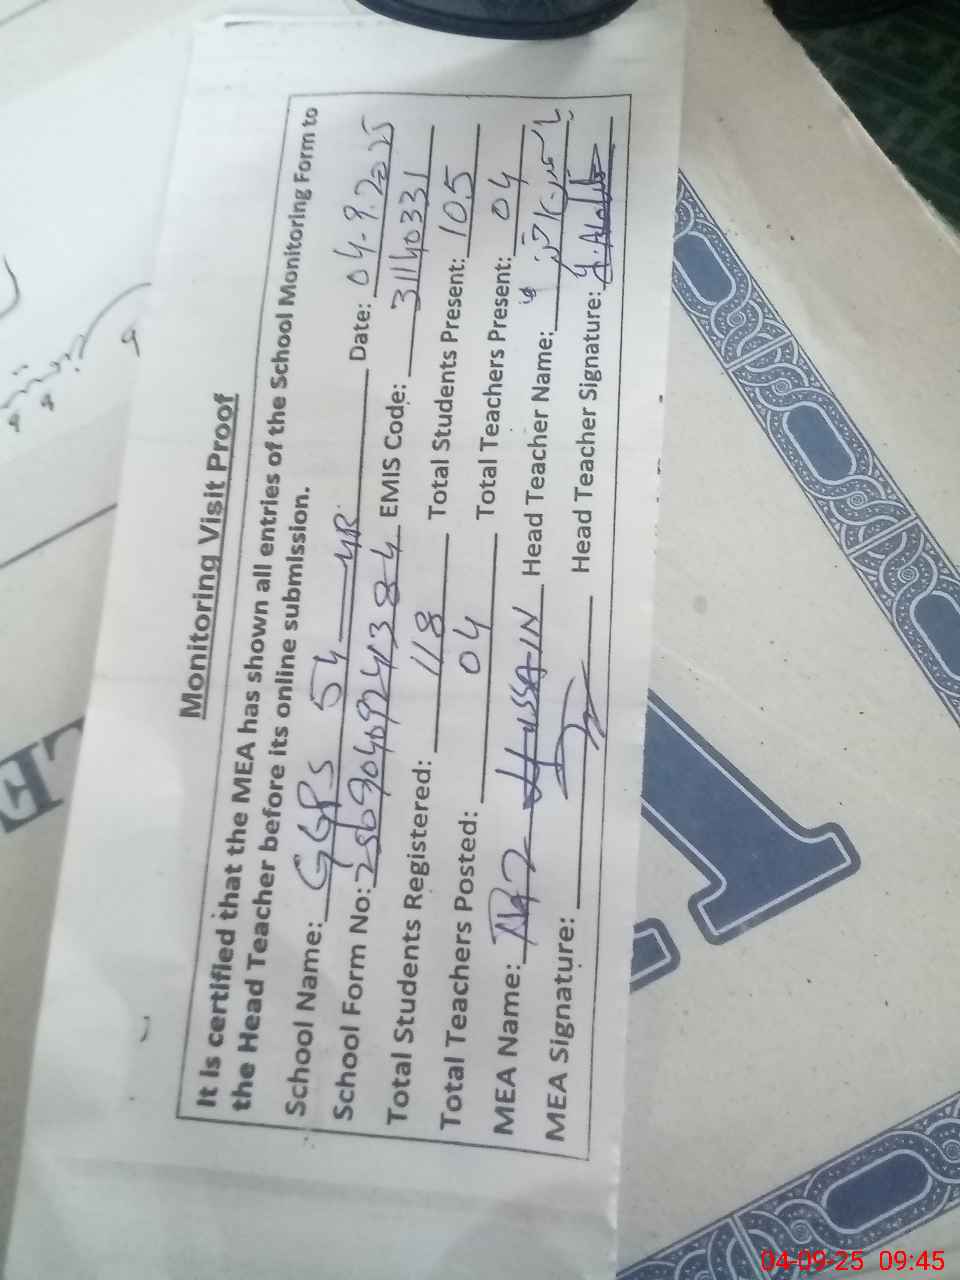 Monitoring Visit Proof
It is certified that the MEA has shown all entries of the School Monitoring Form to
the Head Teacher before its online submission.
School Name: GGPS 54 4R Date: 04.9.2025
School Form No: EMIS Code: 31140331
Total Students Registered: 118 Total Students Present: 105
Total Teachers Posted: 04 Total Teachers Present: 04
MEA Name: HUSSAIN Head Teacher Name:
MEA Signature: Head Teacher Signature:
04-09-25 09:45